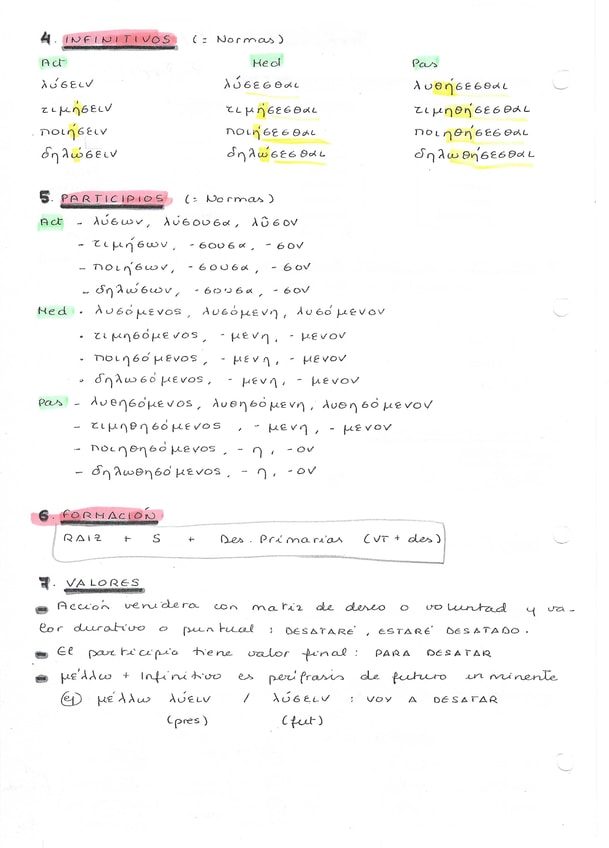 4. INFINITIVOS (= Normas)
Act Med Pas
λύσειν λύσεσθαι λυθήσεσθαι
τιμήσειν τιμήσεσθαι τιμηθήσεσθαι
ποιήσειν ποιήσεσθαι ποιηθήσεσθαι
δηλώσειν δηλώσεσθαι δηλωθήσεσθαι
5. PARTICIPIOS (= Normas)
Act - λύσων, λύσουσα, λῦσον
- τιμήσων, -σουσα, -σον
- ποιήσων, -σουσα, -σον
- δηλώσων, -σουσα, -σον
Med · λυσόμενος, λυσόμενη, λυσόμενον
· τιμησόμενος, -μενη, -μενον
· ποιησόμενος, -μενη, -μενον
· δηλωσόμενος, -μενη, -μενον
Pas - λυθησόμενος, λυθησόμενη, λυθησόμενον
- τιμηθησόμενος, -μενη, -μενον
- ποιηθησόμενος, -η, -ον
- δηλωθησόμενος, -η, -ον
6. FORMACIÓN
RAIZ + S + Des. Primarias (VT + des)
7. VALORES
- Acción venidera con matiz de deseo o voluntad y va-
lor durativo o puntual : DESATARÉ, ESTARÉ DESATADO.
- El participio tiene valor final : PARA DESATAR
- μέλλω + Infinitivo es perífrasis de futuro inminente
ej) μέλλω λύειν / λύσειν : VOY A DESATAR
(pres) (fut)